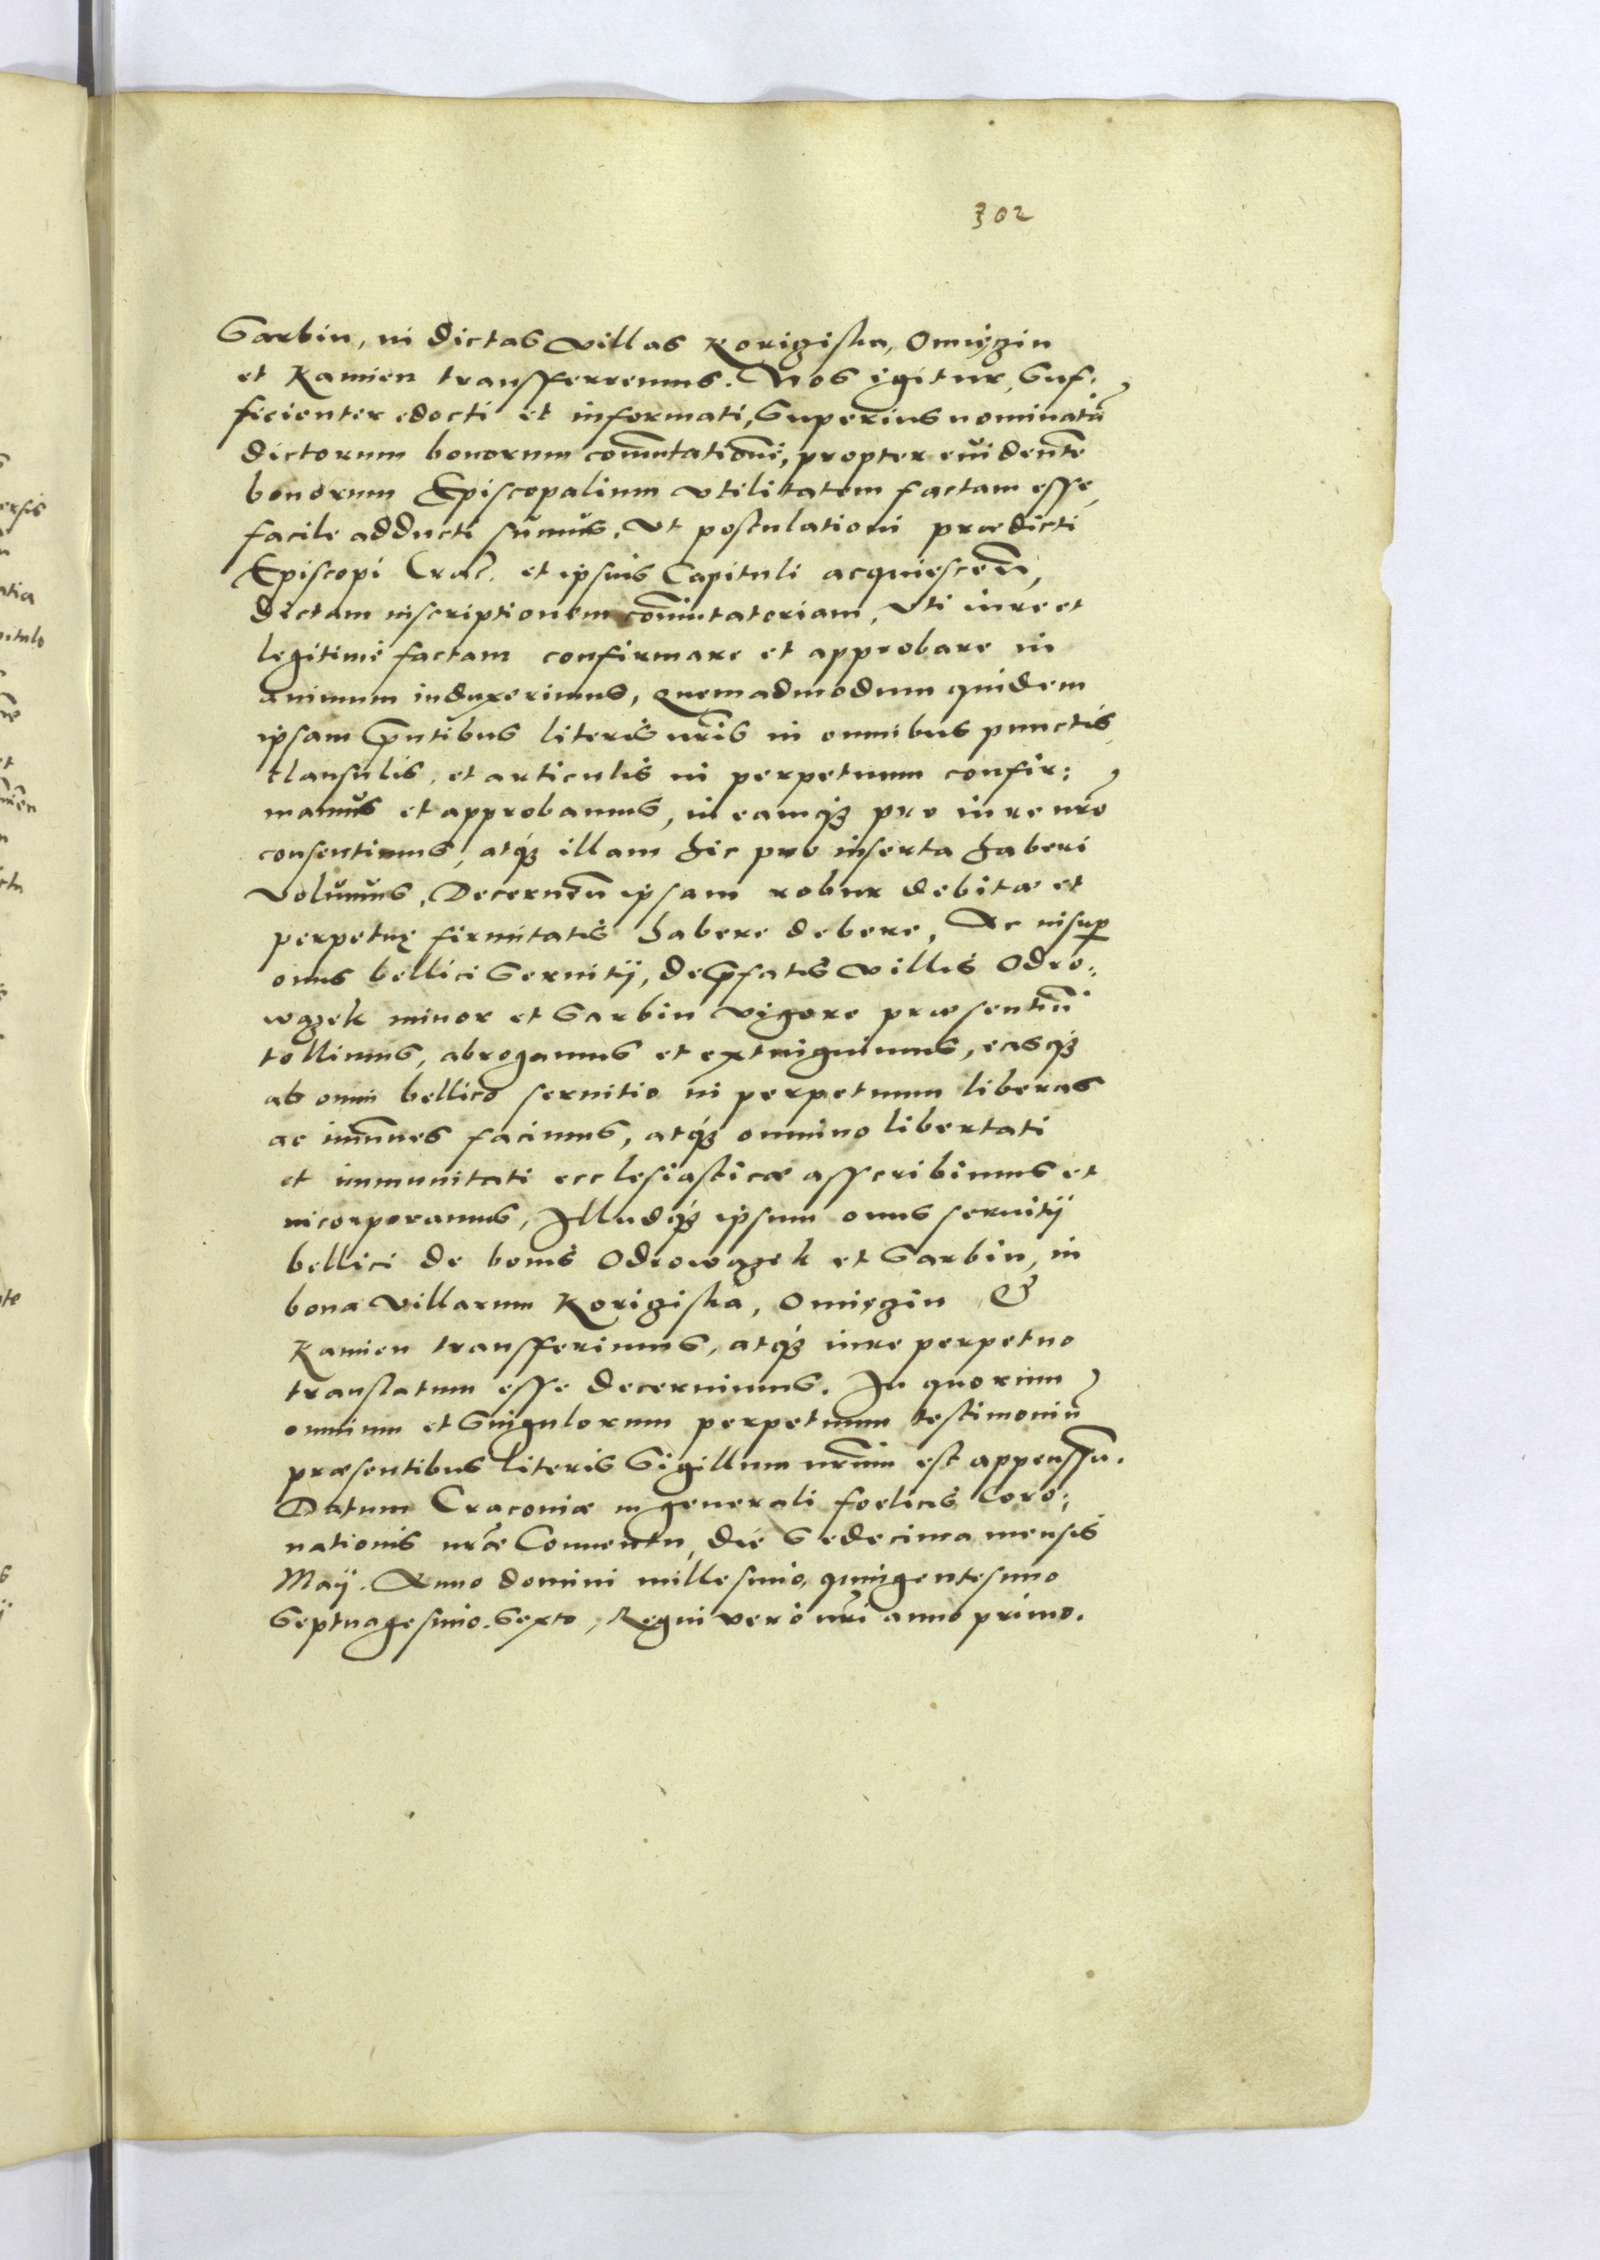 302
Garbin, in dictas villas Korigiska, Omięgin
et Kamien transfferremus. Nos igitur, suf:
ficienter edocti et informati, superius nominatā
dictorum bonorum com̄utationē, propter euidentē
bonorum Episcopalium vtilitatem factam esse,
facile adducti sumus. Vt postulationi prædicti
Episcopi Crac̄. et ipsius Capituli acquiescen̄,
dictam inscriptionem com̄utatoriam, vti iure et
legitimè factam confirmare et approbare in
animum induxerimus, quemadmodum quidem
ipsam p̄ntibus literis nr̄is in omnibus punctis
clausulis, et articulis in perpetuum confir:
mamus et approbamus, in eamq́ꝫ pro iure nr̄o
consentimus, atq́ꝫ illam hic pro inserta haberi
volumus. Decernen̄ ipsam robur debitæ et
perpetuę firmitatis habere debere. Ac insuꝑ
onus bellici seruitij, de p̄fatis villis Odro:
wązek minor et Garbin vigore præsentiū
tollimus, abrogamus et extinguimus, easq́ꝫ
ab omni bellico seruitio in perpetuum liberas
ac im̄unes facimus, atq́ꝫ omnino libertati
et immunitati ecclesiasticæ asscribimus et
incorporamus, Illudq́ꝫ ipsum onus seruitij
bellici de bonis Odrowązek et Garbin, in
bona villarum Korigiska, Omięgin &
Kamien transfferimus, atq́ꝫ iure perpetuo
translatum esse decernimus. In quorum
omnium et singulorum perpetuum testimoniū
præsentibus literis Sigillum nr̄um est appenssū.
Datum Cracouiæ in generali fœlicis Coro:
nationis nr̄æ Conuentu, die sedecima mensis
Maij. Anno domini millesimo, quingentesimo
Septuagesimo. Sexto, Regni verò nr̄i anno primo.